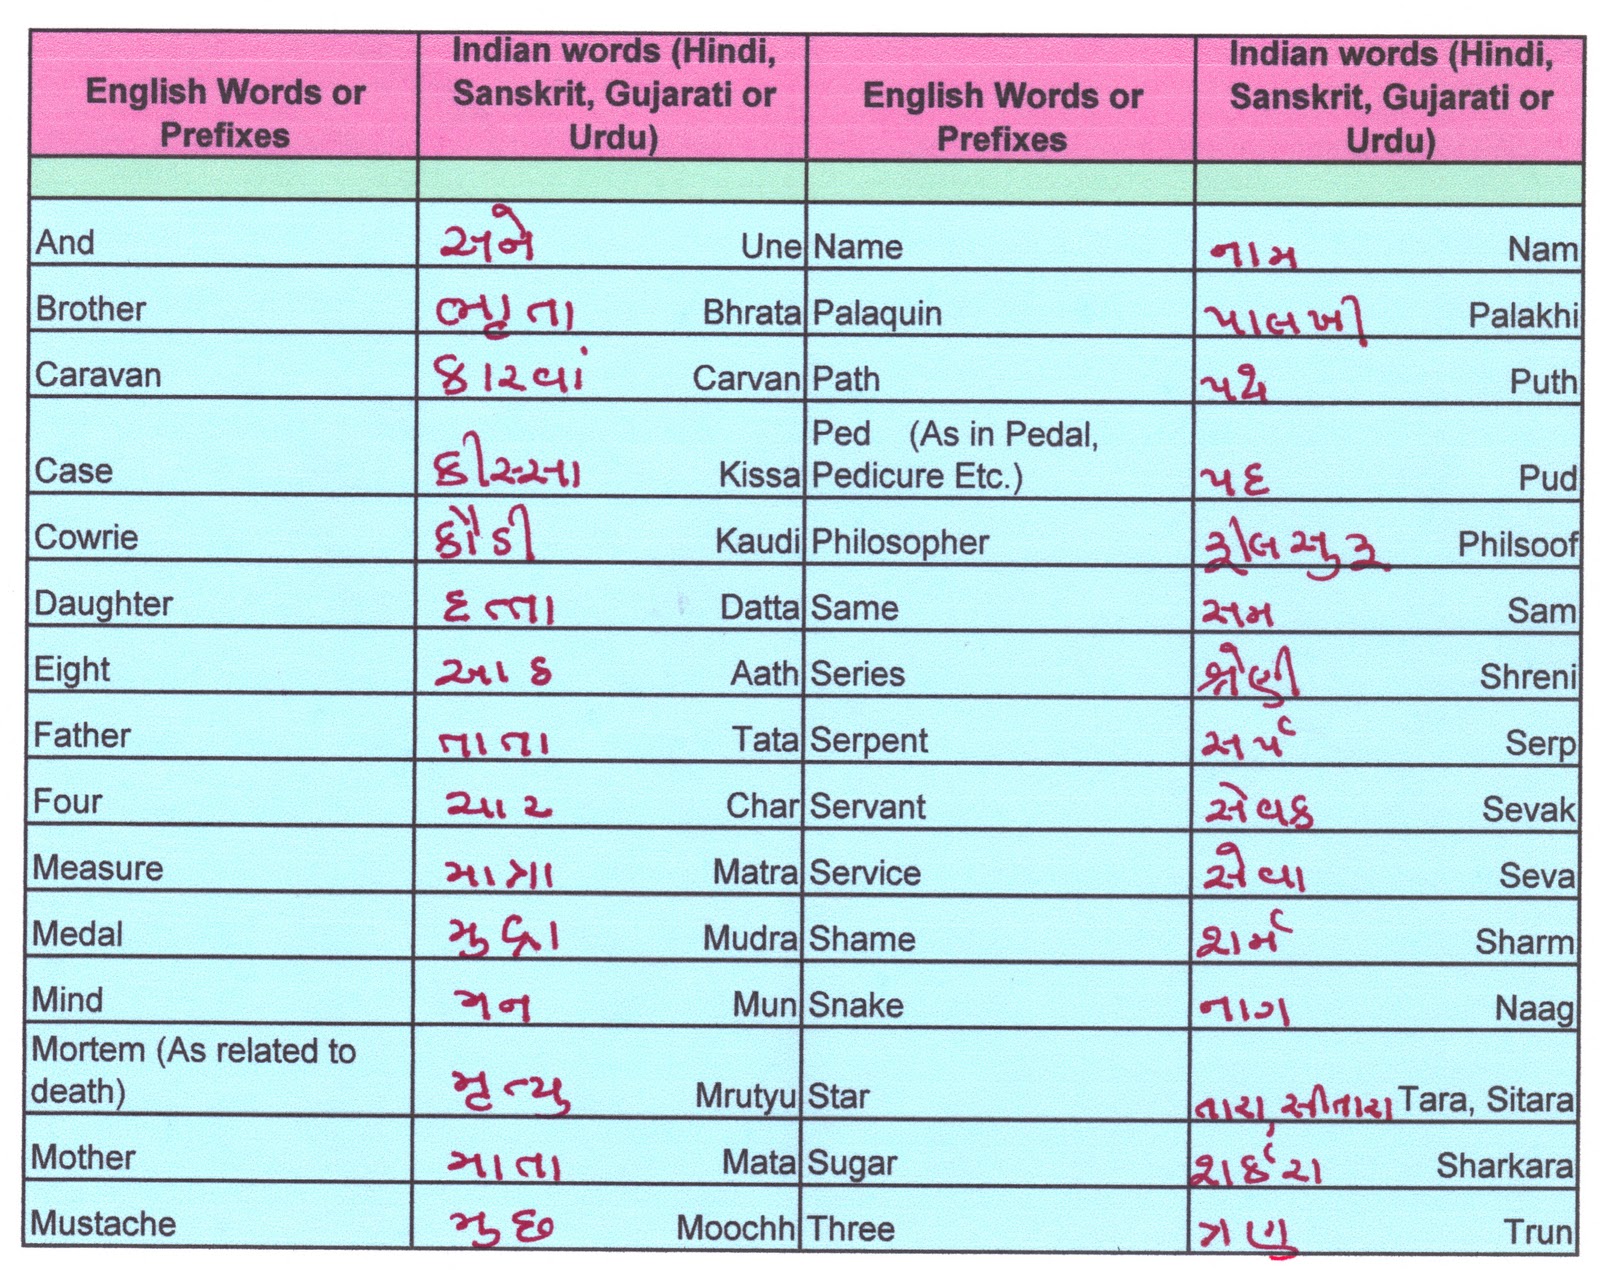 English Words or Prefixes | Indian words (Hindi, Sanskrit, Gujarati or Urdu) | English Words or Prefixes | Indian words (Hindi, Sanskrit, Gujarati or Urdu)
And | અને Une | Name | નામ Nam
Brother | ભ્રાતા Bhrata | Palaquin | પાલખી Palakhi
Caravan | કારવાં Carvan | Path | પથ Puth
Case | કીસ્સા Kissa | Ped (As in Pedal, Pedicure Etc.) | પદ Pud
Cowrie | કૌડી Kaudi | Philosopher | ફીલસુફ Philsoof
Daughter | દત્તા Datta | Same | સમ Sam
Eight | આઠ Aath | Series | શ્રેણી Shreni
Father | તાતા Tata | Serpent | સર્પ Serp
Four | ચાર Char | Servant | સેવક Sevak
Measure | માત્રા Matra | Service | સેવા Seva
Medal | મુદ્રા Mudra | Shame | શર્મ Sharm
Mind | મન Mun | Snake | નાગ Naag
Mortem (As related to death) | મૃત્યુ Mrutyu | Star | તારા, સીતારા Tara, Sitara
Mother | માતા Mata | Sugar | શર્કરા Sharkara
Mustache | મુછ Moochh | Three | ત્રણ Trun